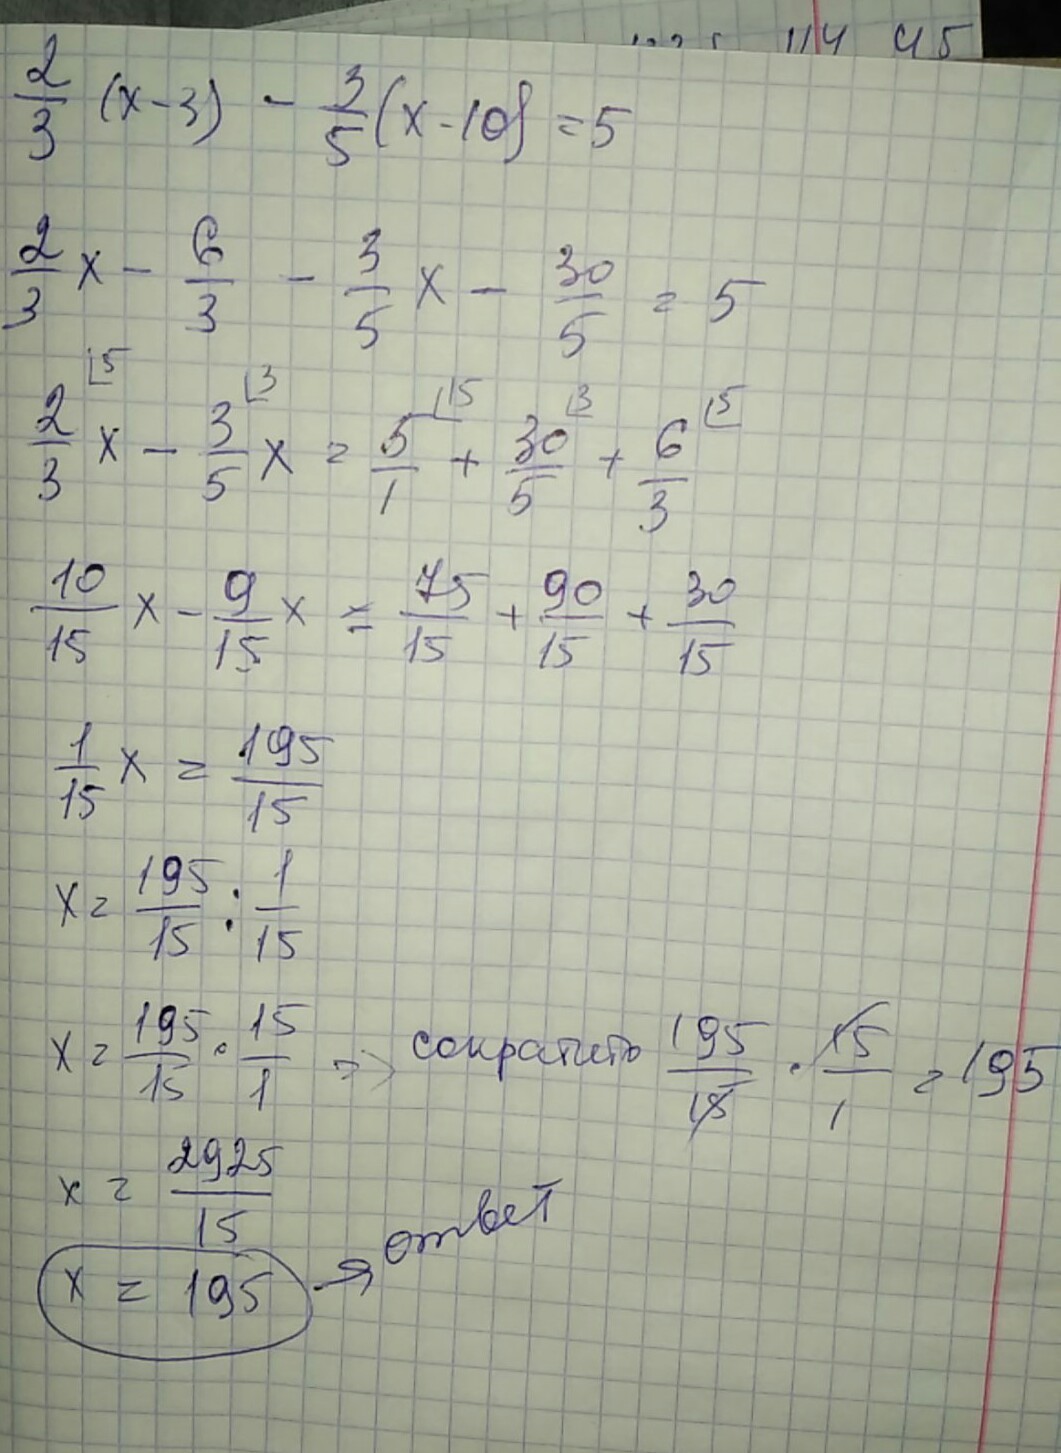 114 45
2/3 (x-3) - 3/5 (x-10) = 5
2/3 x - 6/3 - 3/5 x - 30/5 = 5
2/3 ⌊5 x - 3/5 ⌊3 x = 5/1 ⌊15 + 30/5 ⌊3 + 6/3 ⌊5
10/15 x - 9/15 x = 75/15 + 90/15 + 30/15
1/15 x = 195/15
x = 195/15 : 1/15
x = 195/15 · 15/1 => сократить 195/15 · 15/1 = 195
x = 2925/15
x = 195 → ответ